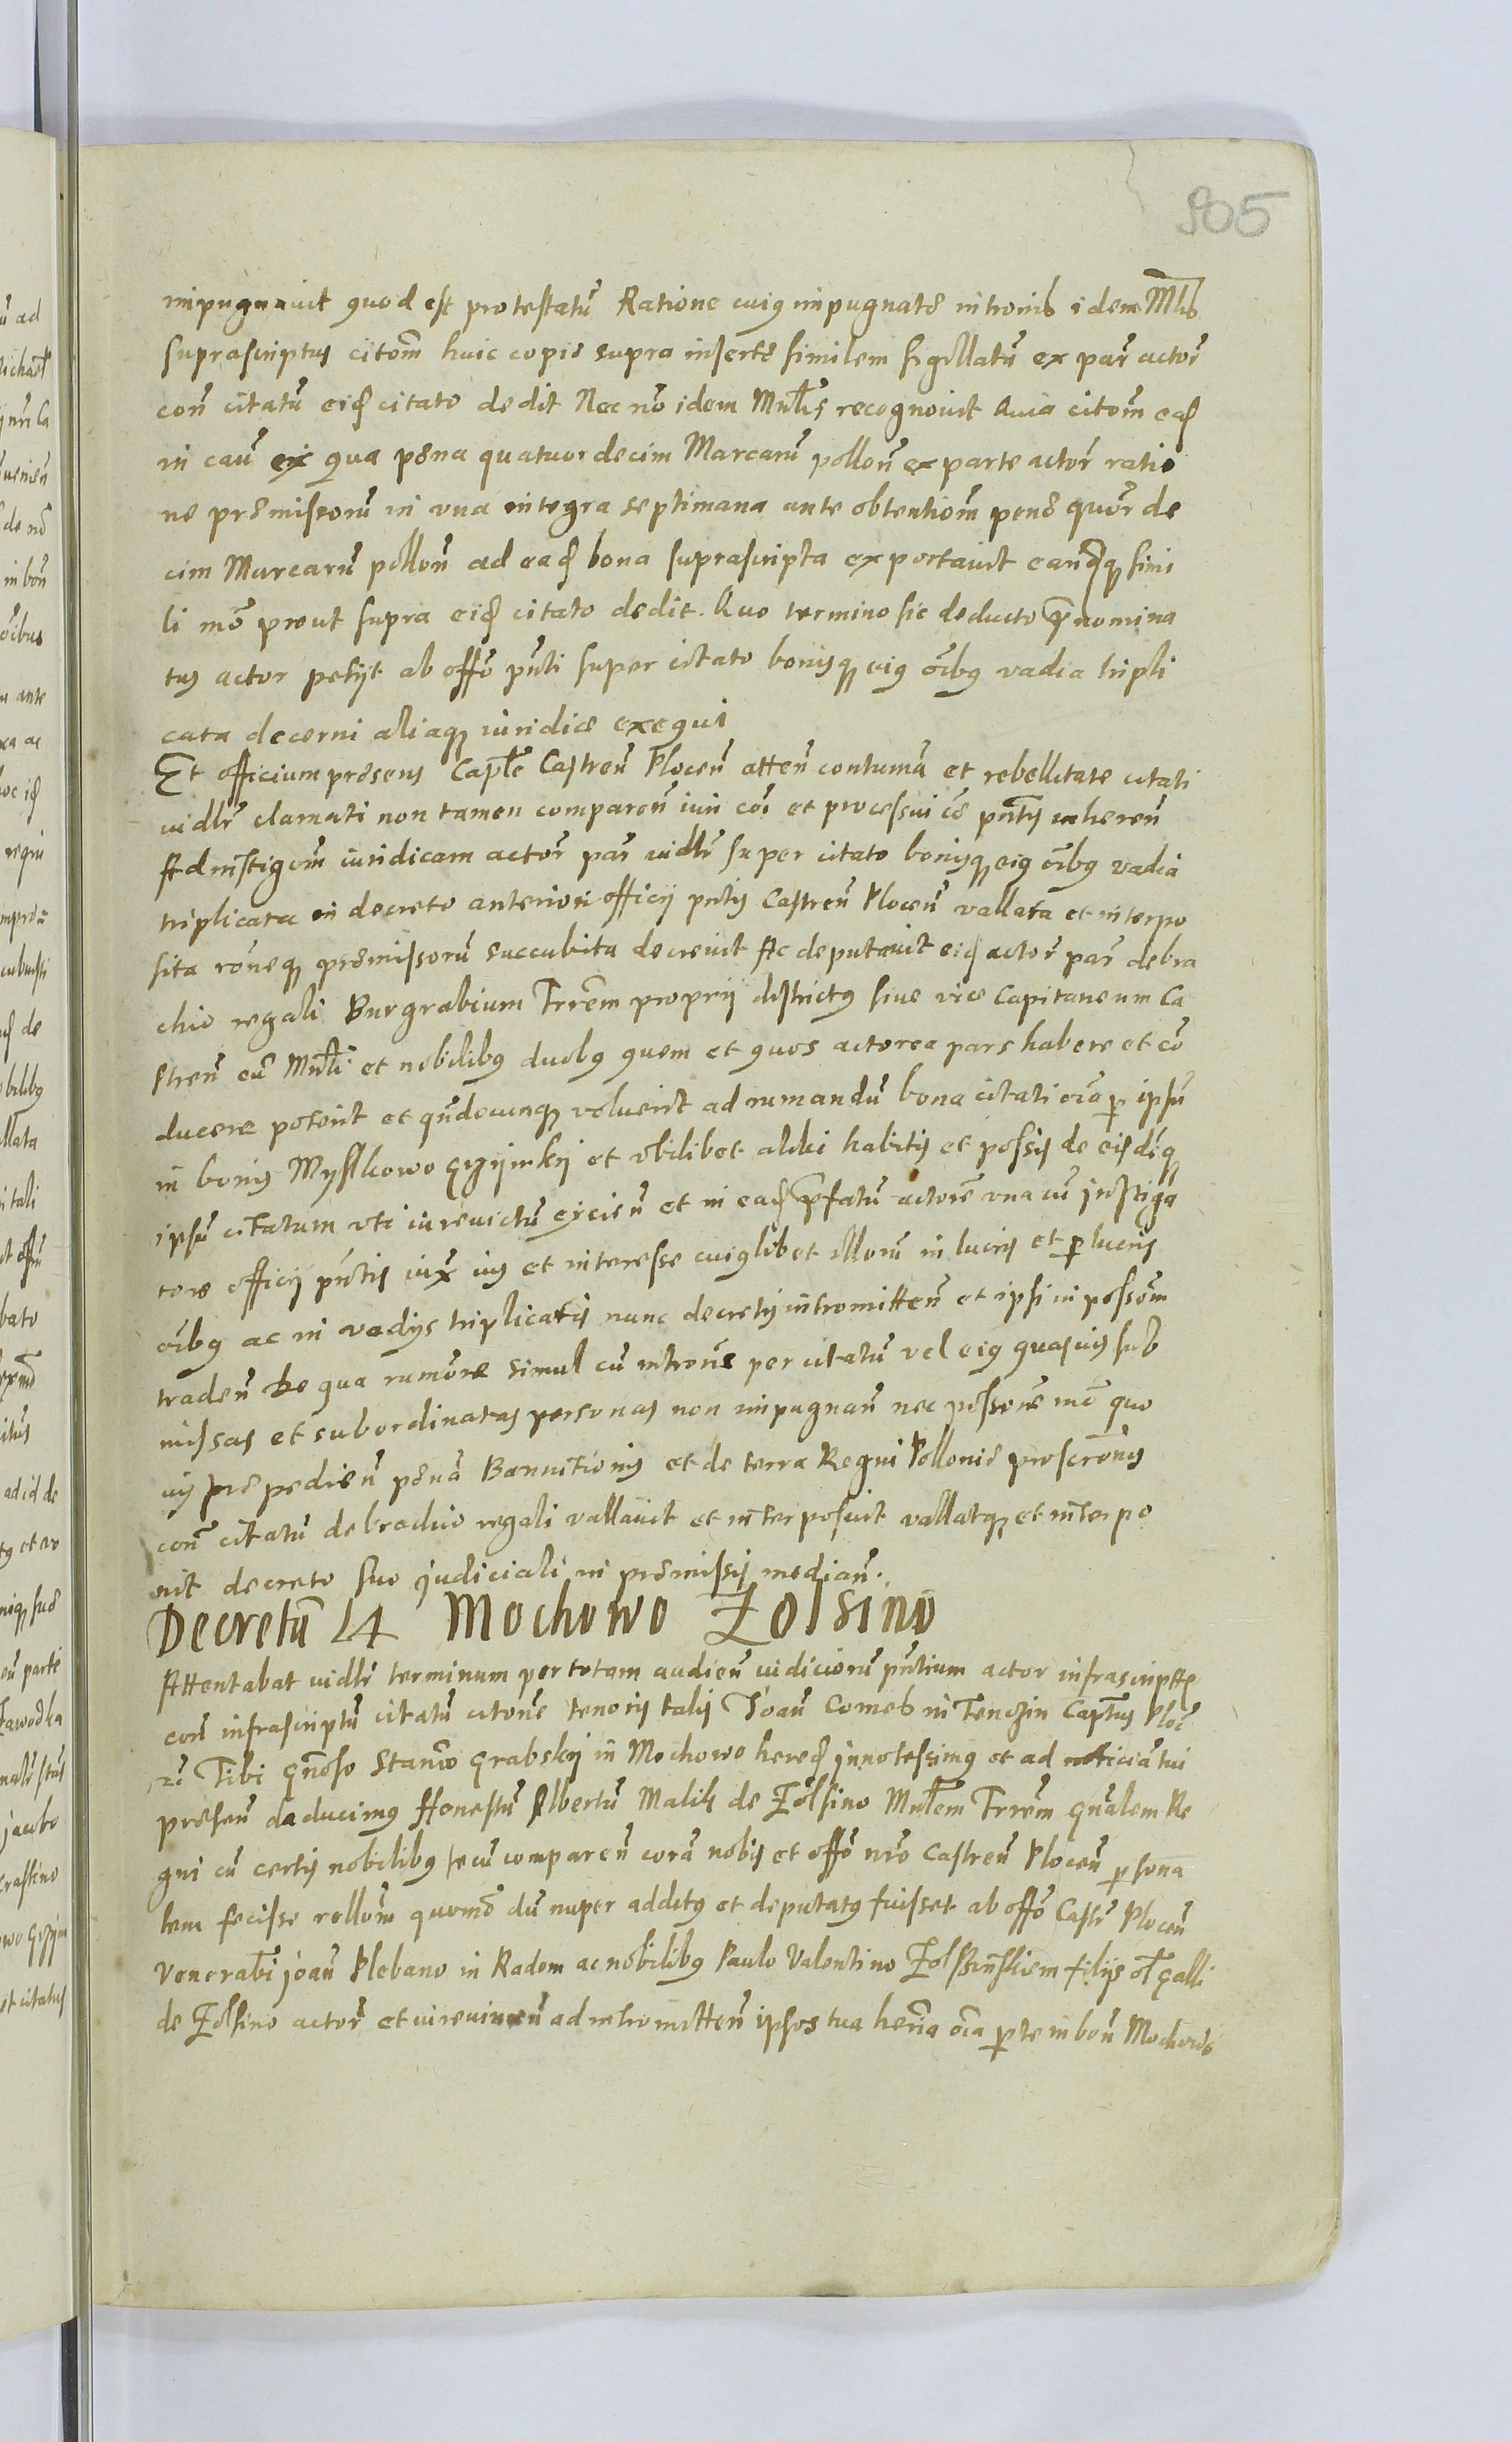 905
impugnauit quod est protestatū Ratione cuiꝰ impugnatę introniō idem Mlis
suprascriptus citōm huic copię supra insertę similem sigillatū ex par actor
con̄ citatū eid citato dedit Nec nō idem Mnlis recognouit Quia citōm ead
in cau ex qua pęna quatuordecim Marcarū pollon̄ ex parte actor ratio
ne pręmissorū in vna integra septimana ante obtentiōm penę quor de
cim Marcarū pollon̄ ad ead bona suprascripta exportauit eandq simi
li mō prout supra eid citato dedit. Quo termino sic deducto prenomina
tus actor petijt ab offō pnti super citato bonisq eiꝰ oibꝰ vadia tripli
cata decerni aliaq iuridice exequi
Et officium pręsens Captle Castren̄ Plocen̄ atten̄ contumā et rebellitate citati
vidlr clamati non tamen comparen̄ iuri cōi et processui cę pntis inheren̄
Ad instigōm iuridicam actor par vidlr super citato bonisq eiꝰ oibꝰ vadia
triplicata in decreto anteriori officij pntis Castren̄ Plocen̄ vallata et interpo
sita rōneq pręmissorū succubita decreuit Ac deputauit eid actor par de bra
chio regali Burgrabium Trrēm proprij districtꝰ siue vice Capitaneum Ca
stren̄ cū Mnlī et nobilibꝰ duobꝰ quem et quos actorea pars habere et cō
ducere poterit et qn̄docunq voluerit ad rumandū bona citati oīa p ipsū
in bonis Myslkowo gzijmkij et vbilibet alibi habitis et possis de eisdq
ipsū citatum vti iureuictū eijcien̄ et in ead prefatū actorē vna cū instiga
tore officij pntis iux ius et interesse cuiꝰlibet illorū in lucris et p lucris
oībꝰ ac in vadijs triplicatis nunc decretis intromitten̄ et ipsi in possōm
traden̄ De qua rumōne simul cū introne per citatū vel eiꝰ quasuis sub
missas et subordinatas personas non impugnan̄ nec possone mō quo
uis prępedien̄ pęnā Bannitionis et de terra Regni Pollonię proscrōnis
con̄ citatū de brachio regali vallauit et interposuit vallatq et interpo
nit decreto suo judiciali in pręmissis median̄.
Decretū L4 Mochowo Żolsino
Attentabat vidlr terminum per totam audien̄ iudiciorū pntium actor infrascriptꝰ
con̄ infrascriptū citatū citone tenoris talis Joan̄ Comes in Tenczin Captus Ploc
rc Tibi gnoso Stanō grabskij in Mochowo hered jnnotessimꝰ et ad noticiā tui
pręsen̄ deducimꝰ Honestū Albertū Malik de Żolsino Mnlem Trrēm gnalem Re
gni cū certis nobilibꝰ secū comparen̄ corā nobis et offō nrō Castren̄ Plocen̄ psona
lem fecisse rellōm quomō dū nuper additꝰ et deputatꝰ fuisset ab offō Castr Plocen̄
Venerabī joan̄ Plebano in Radom ac nobilibꝰ Paulo Valentino Żolssinskiem filijs ol galli
de Żolsino actor et iureuincen̄ ad intromitten̄ ipsos tua heria oīa pte in bon̄ Mochowo